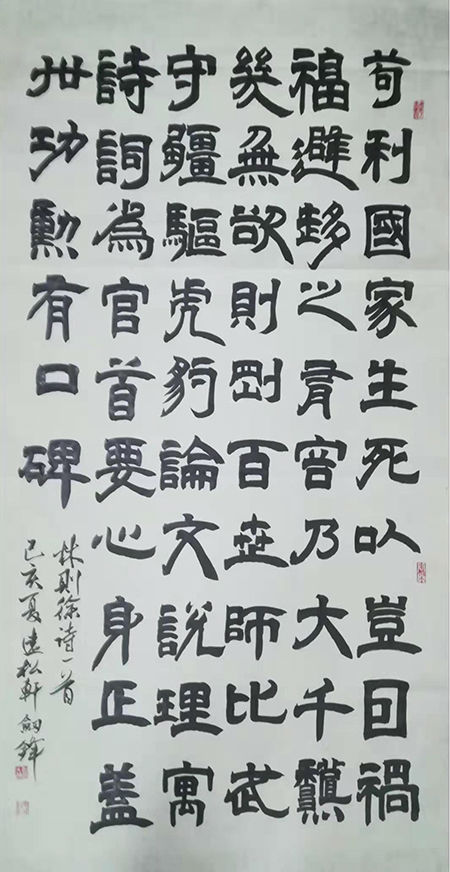 苟利國家生死以豈因禍
福避趍之有容乃大千龝
幾無欲則剛百世師比武
守疆驅虎豹論文説理寓
詩詞為官首要心身正蓋
卋功勳有口碑
林則徐詩一首
己亥夏松軒劍鋒